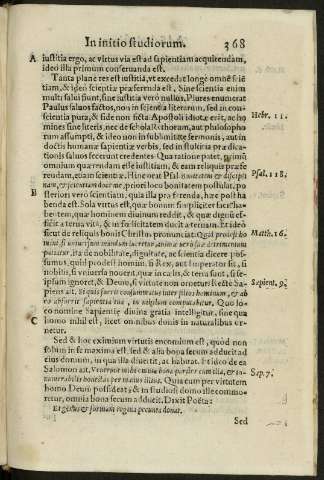 In initio studiorum. 368
A iustitia ergo, ac virtus via est ad sapientiam acquirendam,
ideo illa primum conseruanda est.
Tanta plane res est iustitia, vt excedat longè omnē sciē
tiam, & ideò scientiæ præferenda est. Sine scientia enim
multi salui fiunt, sine iustitia verò nullus. Plures enumerat
Paulus saluos factos, non in scientia literarum, sed in con-
scientia pura, & fide non ficta. Apostoli idiotæ erāt, ac ho
mines sine literis, nec de schola Rhethorum, aut philosopho
rum assumpti, & ideo non in sublimitate sermonis, aut in
doctis humanæ sapientiæ verbis, sed in stulticia prædica-
tionis saluos fecerunt credentes. Qua ratione patet, primū
omnium quærendam esse iustitiam, & eam reliquis præfe
rendam, etiam scientiæ. Hinc orat Psal. Bonitatem & discipli
nam, & scientiam doce me, priori loco bonitatem postulat, po
B steriori verò scientiam, quia illa præferenda, hæc posthà
benda est. Sola virtus est, quæ bonum simpliciter facit ha-
bentem, quæ hominem diuinum reddit, & quæ dignū ef-
ficit æterna vita, & in fœlicitatem ducit æternam. Et ideò
sicut de reliquis bonis Christus pronuntiat: Quid prodest ho
mini si vniuersum mundum lucretur, animæ vero suæ detrimentum
patiatur, ita de nobilitate, dignitate, ac scientia dicere pos-
sumus, quid prodest homini si Rex, aut Imperator sit, si
nobilis, si vniuersa nouerit, quæ in cælis, & terra sunt, si se-
ipsum ignoret, & Deum, si virtute non ornetur: Kesse Sa-
piens ait. Si quis fuerit consummatus inter filios hominum, & ab
eo abfuerit sapientia tua, in nihilum computabitur. Quo lo-
co nomine Sapientiæ diuina gratia intelligitur, sine qua
C homo nihil est, licet omnibus donis in naturalibus or-
netur.
Sed & hoc eximium virtutis encomium est, quod non
solùm in se maxima est, sed & alia bona secum adducit ad
eius dominum, in qua illa diuertit, ac habitat. Et ideò de ea
Salomon ait. Venerunt mihi omnia bona pariter cum illa, & in-
numerabilis honestas per manus illius. Quia cum per virtutem
homo Deum possideat, & in studiosi domo ille commo-
retur, omnia bona secum adducit. Dixit Poëta:
Et genus & formam regina pecunia donat.
Sed
Hebr. 11.
Psal. 118.
Matth. 16.
Sapient. 9.
Sap. 7.